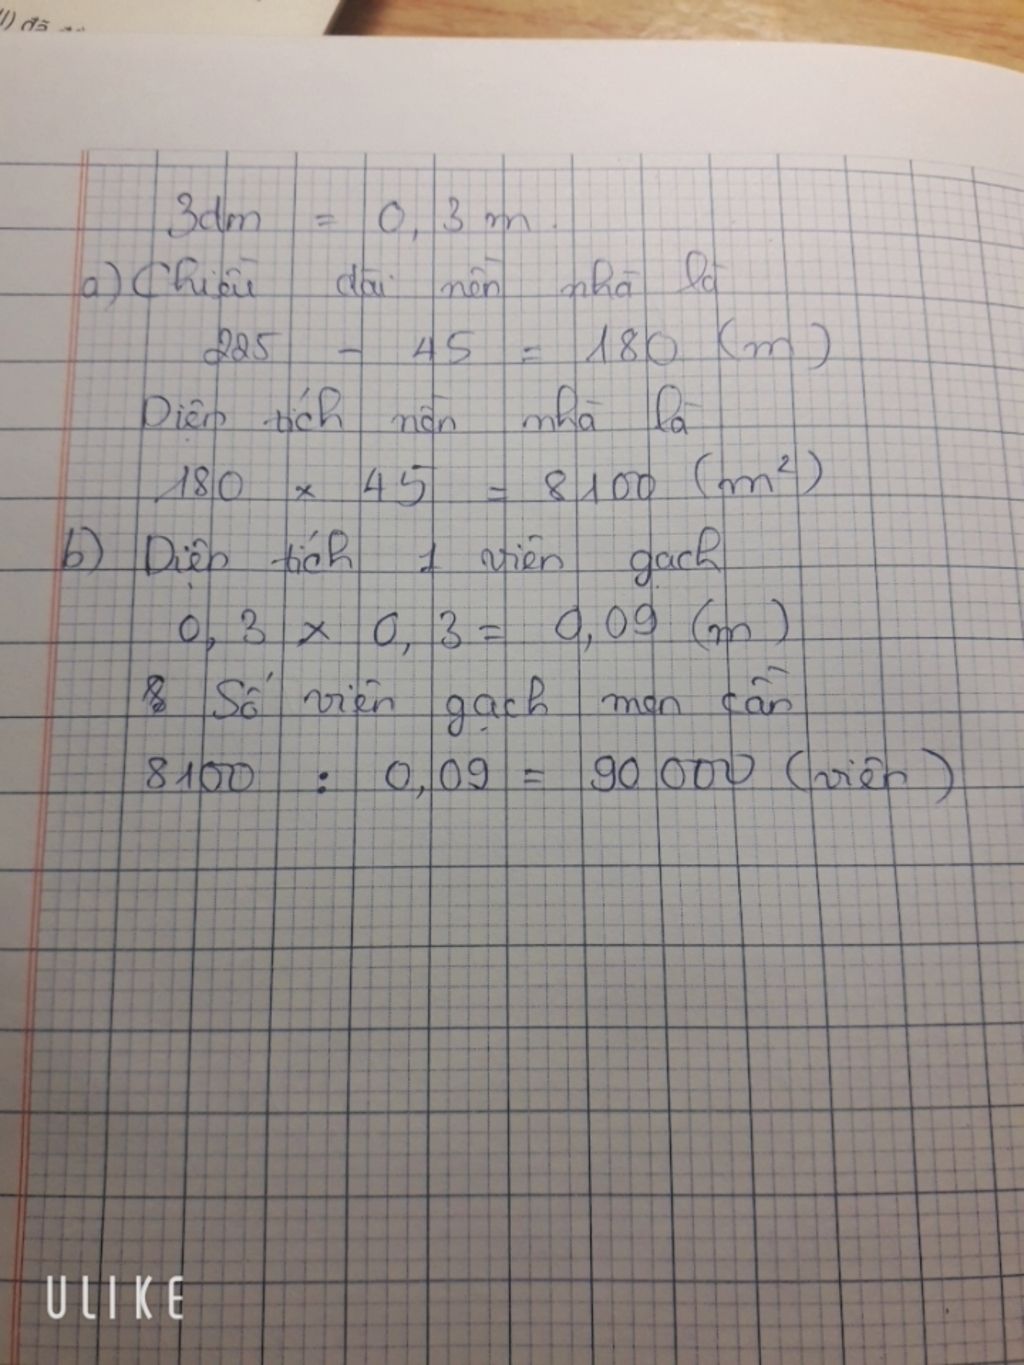 1) đã
3dm = 0,3 m
a) Chiều dài nền nhà là
225 - 45 = 180 (m)
Diện tích nền nhà là
180 x 45 = 8100 (m²)
b) Diện tích 1 viên gạch
0,3 x 0,3 = 0,09 (m)
Số viên gạch men cần
8100 : 0,09 = 90 000 (viên)
ULIKE